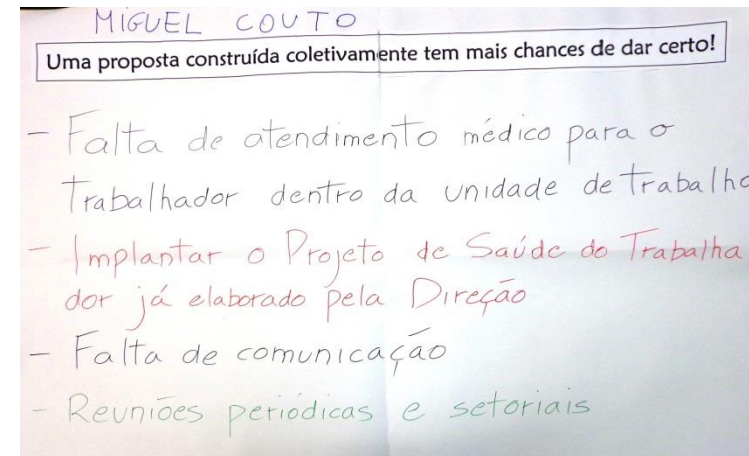 MIGUEL COUTO
Uma proposta construída coletivamente tem mais chances de dar certo!
- Falta de atendimento médico para o
Trabalhador dentro da unidade de Trabalho
- Implantar o Projeto de Saúde do Trabalha
dor já elaborado pela Direção
- Falta de comunicação
- Reuniões periódicas e setoriais